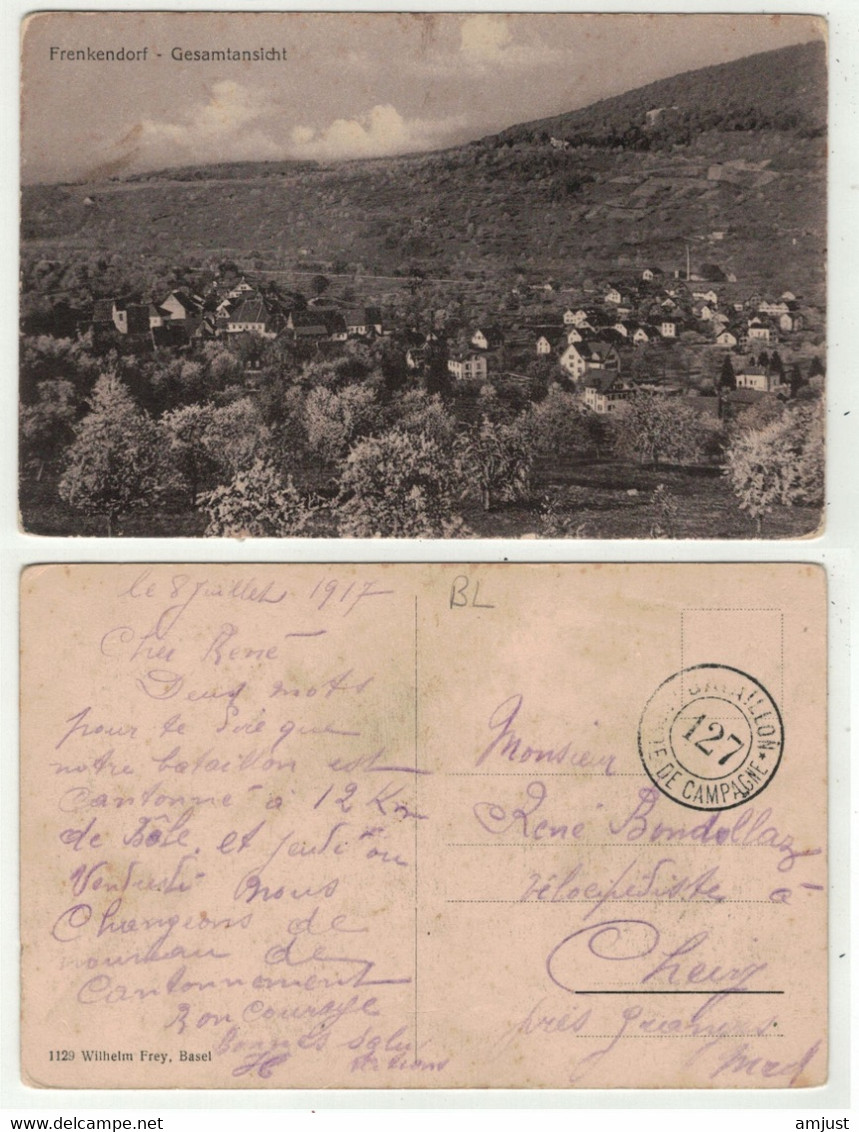 Frenkendorf - Gesamtansicht
le 8 Juillet 1917
BL
Cher René
Deux mots
pour te dire que
notre bataillon est
Cantonné à 12 Km
de Bâle. et jeudi ou
Vendredi nous
Changeons de
nouveau de
Cantonnement
Bon courage
bonnes salu
tations
1129 Wilhelm Frey, Basel
BATAILLON
127
DE CAMPAGNE *
Monsieur
René Bondallaz
vélocipédiste à
Cheiry
près Granges
amjust